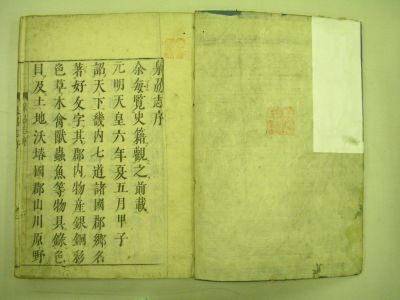 泉州志序
余每覽史籍觀之前載
元明天皇六年夏五月甲子
詔天下畿內七道諸國郡鄉名
著好文字其郡內物產銀銅彩
色草木禽獸蟲魚等物具錄色
目及土地沃塉國郡山川原野